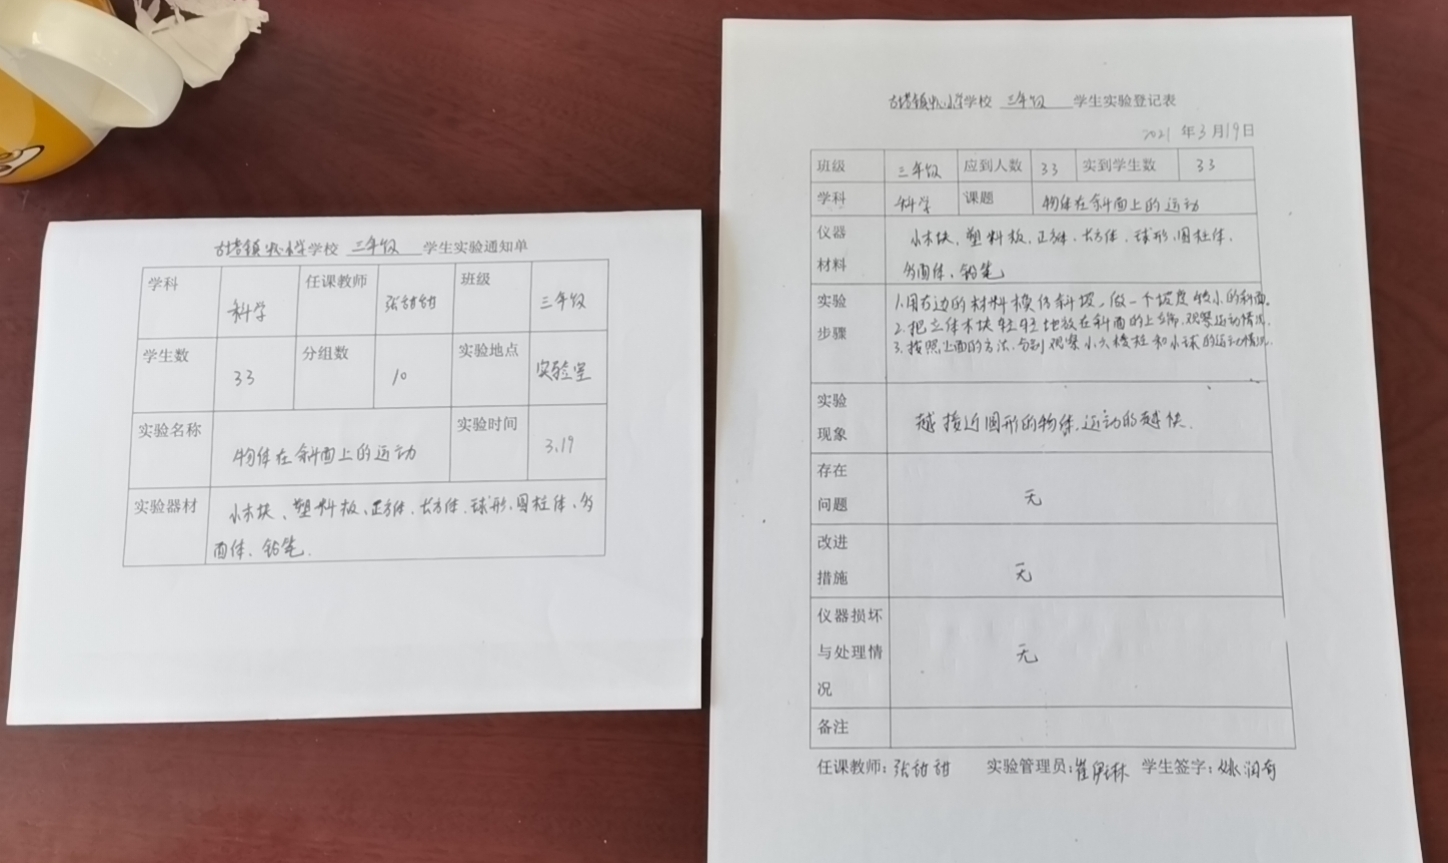 古塔镇中心小学学校 三年级 学生实验通知单
学科 科学 任课教师 张甜甜 班级 三年级
学生数 33 分组数 10 实验地点 实验室
实验名称 物体在斜面上的运动 实验时间 3.19
实验器材 小木块、塑料板、正方体、长方体、球形、圆柱体、多
面体、铅笔.
古塔镇中心小学学校 三年级 学生实验登记表
2021 年 3 月 19 日
班级 三年级 应到人数 33 实到学生数 33
学科 科学 课题 物体在斜面上的运动
仪器 小木块、塑料板、正方体、长方体、球形、圆柱体、
材料 多面体、铅笔
实验 1.用右边的材料模仿斜坡,做一个坡度较小的斜面.
步骤 2.把立体木块轻轻地放在斜面的上端.观察运动情况.
3.按照上面的方法、分别观察小六棱柱和小球的运动情况.
实验
现象 越接近圆形的物体,运动的越快.
存在
问题 无
改进
措施 无
仪器损坏
与处理情 无
况
备注
任课教师:张甜甜 实验管理员:崔 琳 学生签字:姚润奇